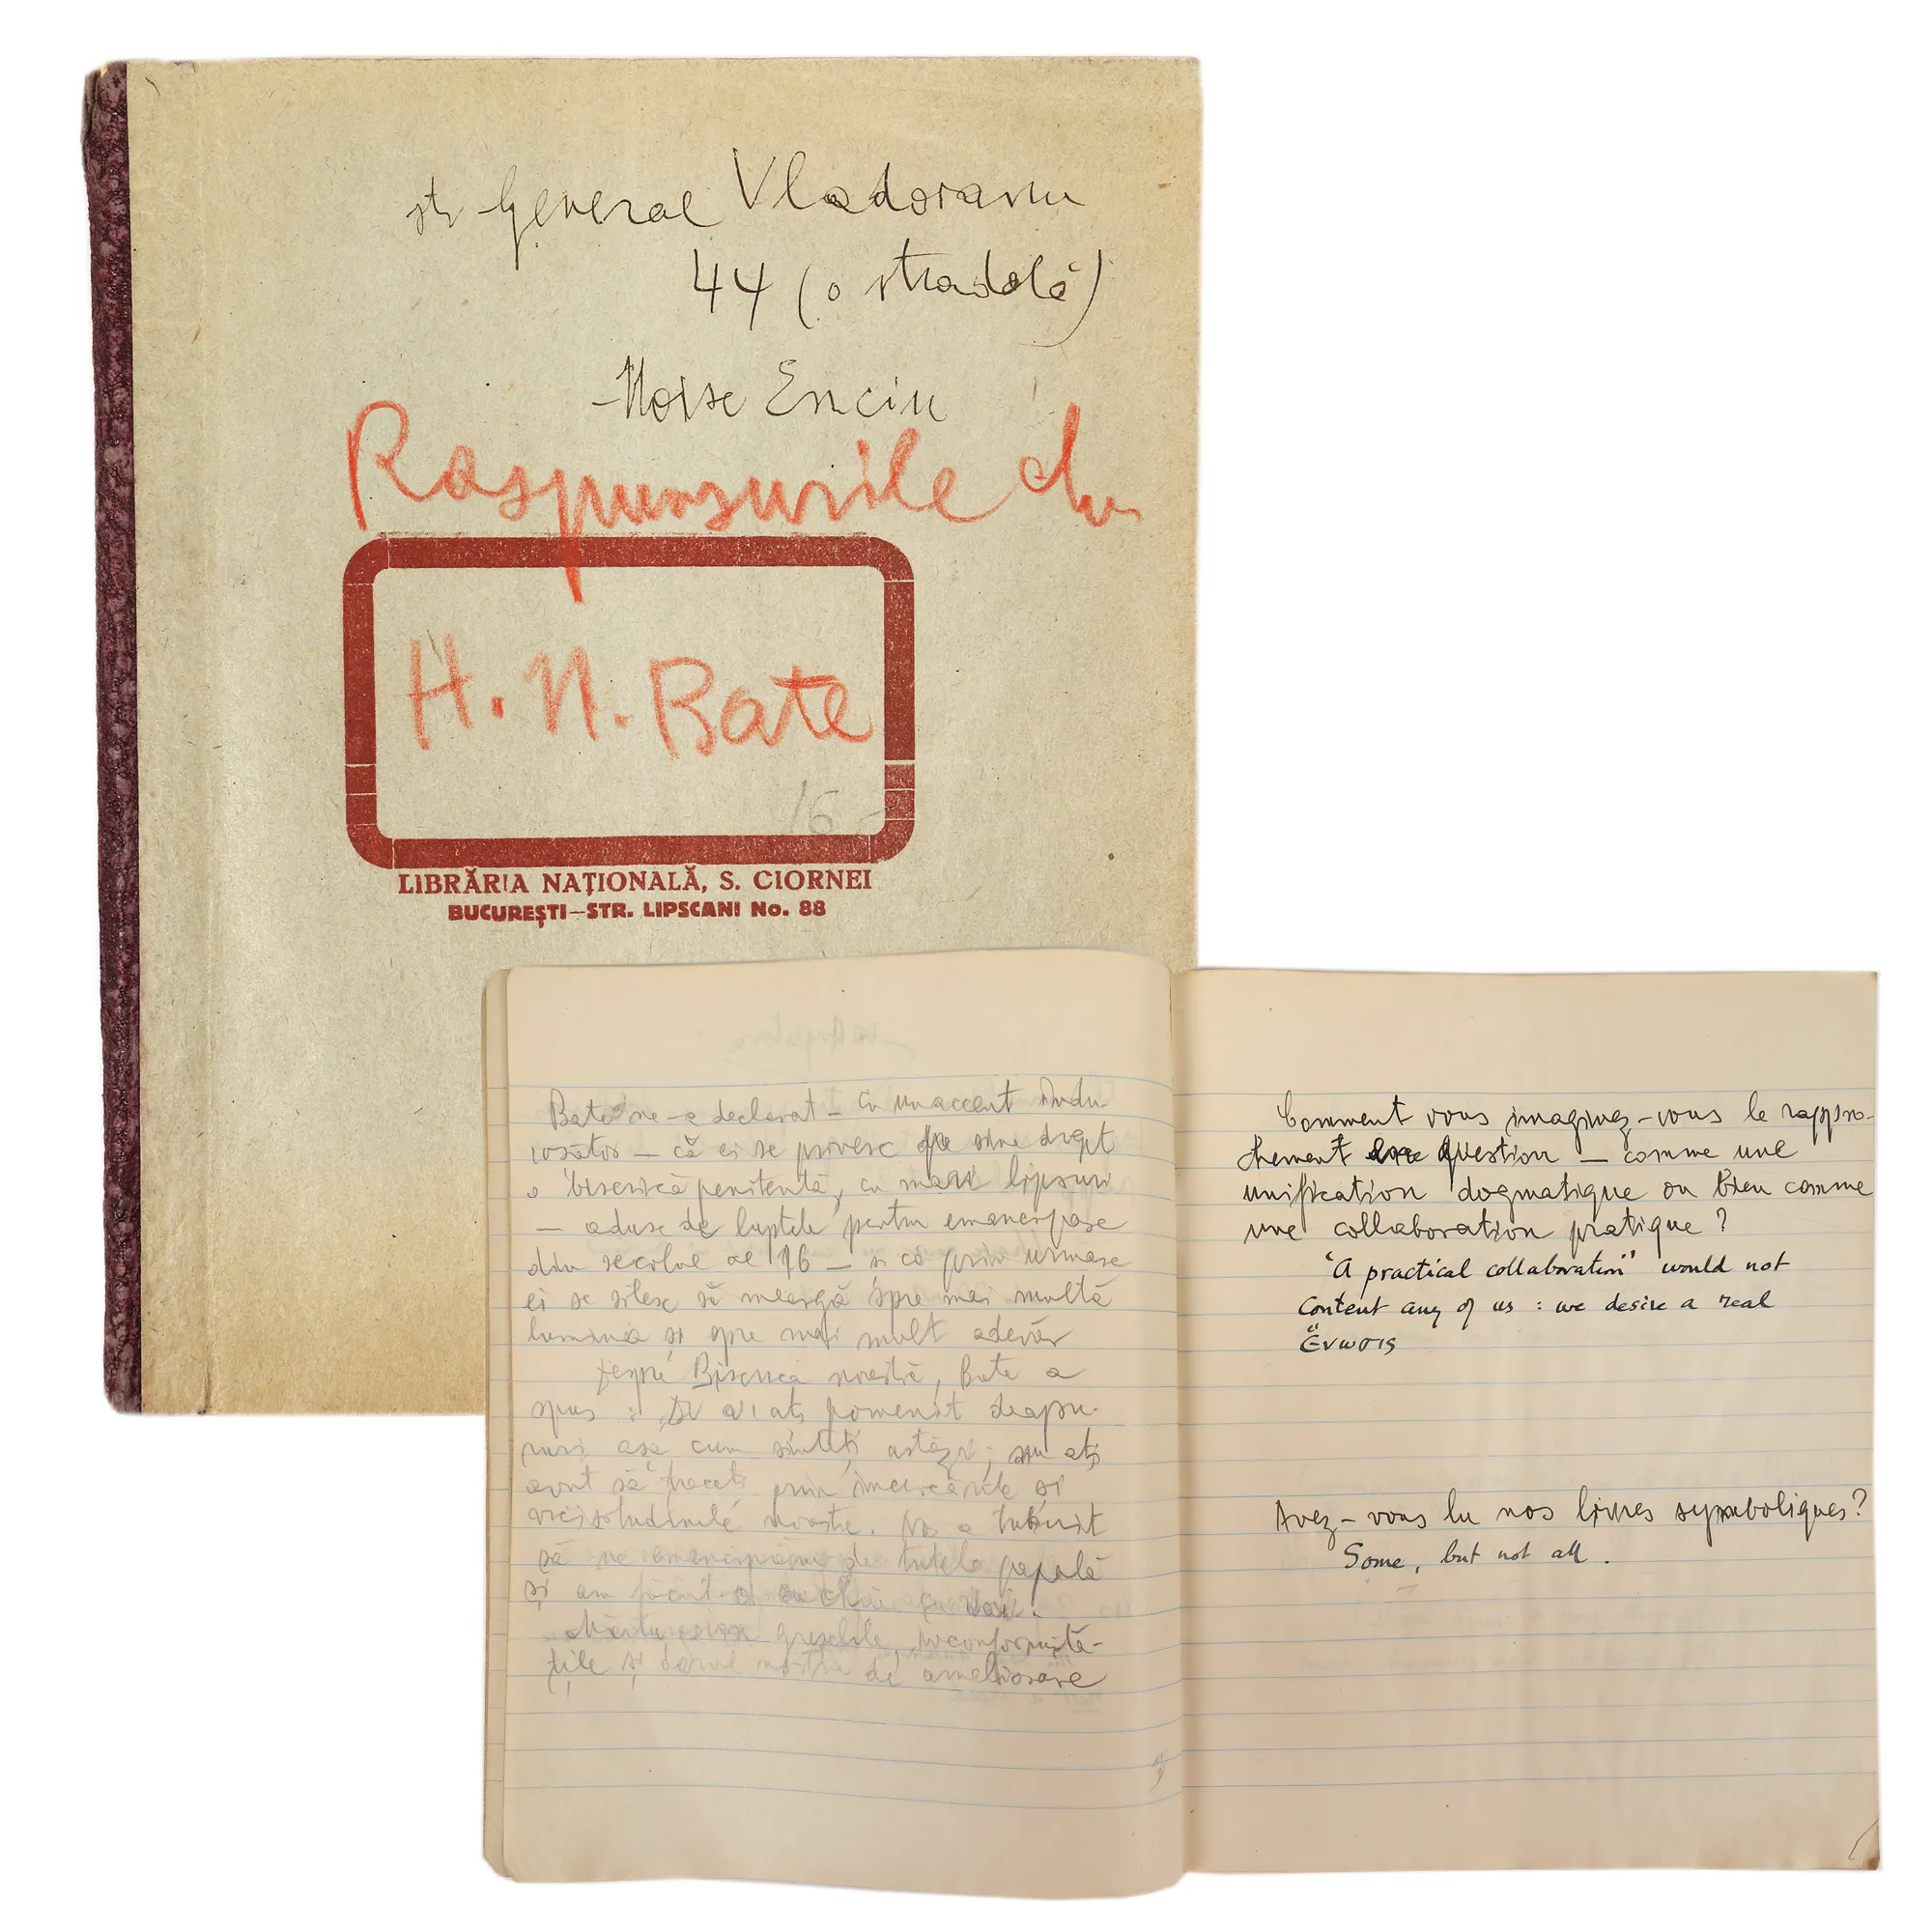 str General Vladoranu
44 (o stradelă)
Moise Enciu
Raspunsurile lui
H. N. Bate
16
LIBRĂRIA NAȚIONALĂ, S. CIORNEI
BUCUREȘTI—STR. LIPSCANI No. 88
Bate ne-a declarat — cu un accent indu-
ioșător — că ei se privesc pe sine drept
o biserică penitentă, cu mari lipsuri
— aduse de luptele pentru emancipare
din secolul al 16 — și că prin urmare
ei se silesc să meargă spre mai multă
lumină și spre mai mult adevăr
Despre Biserica noastră, Bate a
spus: ați pomenit deapu-
ruri așa cum sînteți astăzi; nu ați
avut să treceți prin încercările și
vicisitudinile noastre. No a trebuit
să ne emancipăm de tutela papală
și am făcut
Mărturisim greșelile, inconformită-
țile și dorul nostru de ameliorare
Comment vous imaginez-vous le rappro-
chement question — comme une
unification dogmatique ou bien comme
une collaboration pratique?
"A practical collaboration" would not
content any of us: we desire a real
ἕνωσις
Avez-vous lu nos livres symboliques?
Some, but not all.